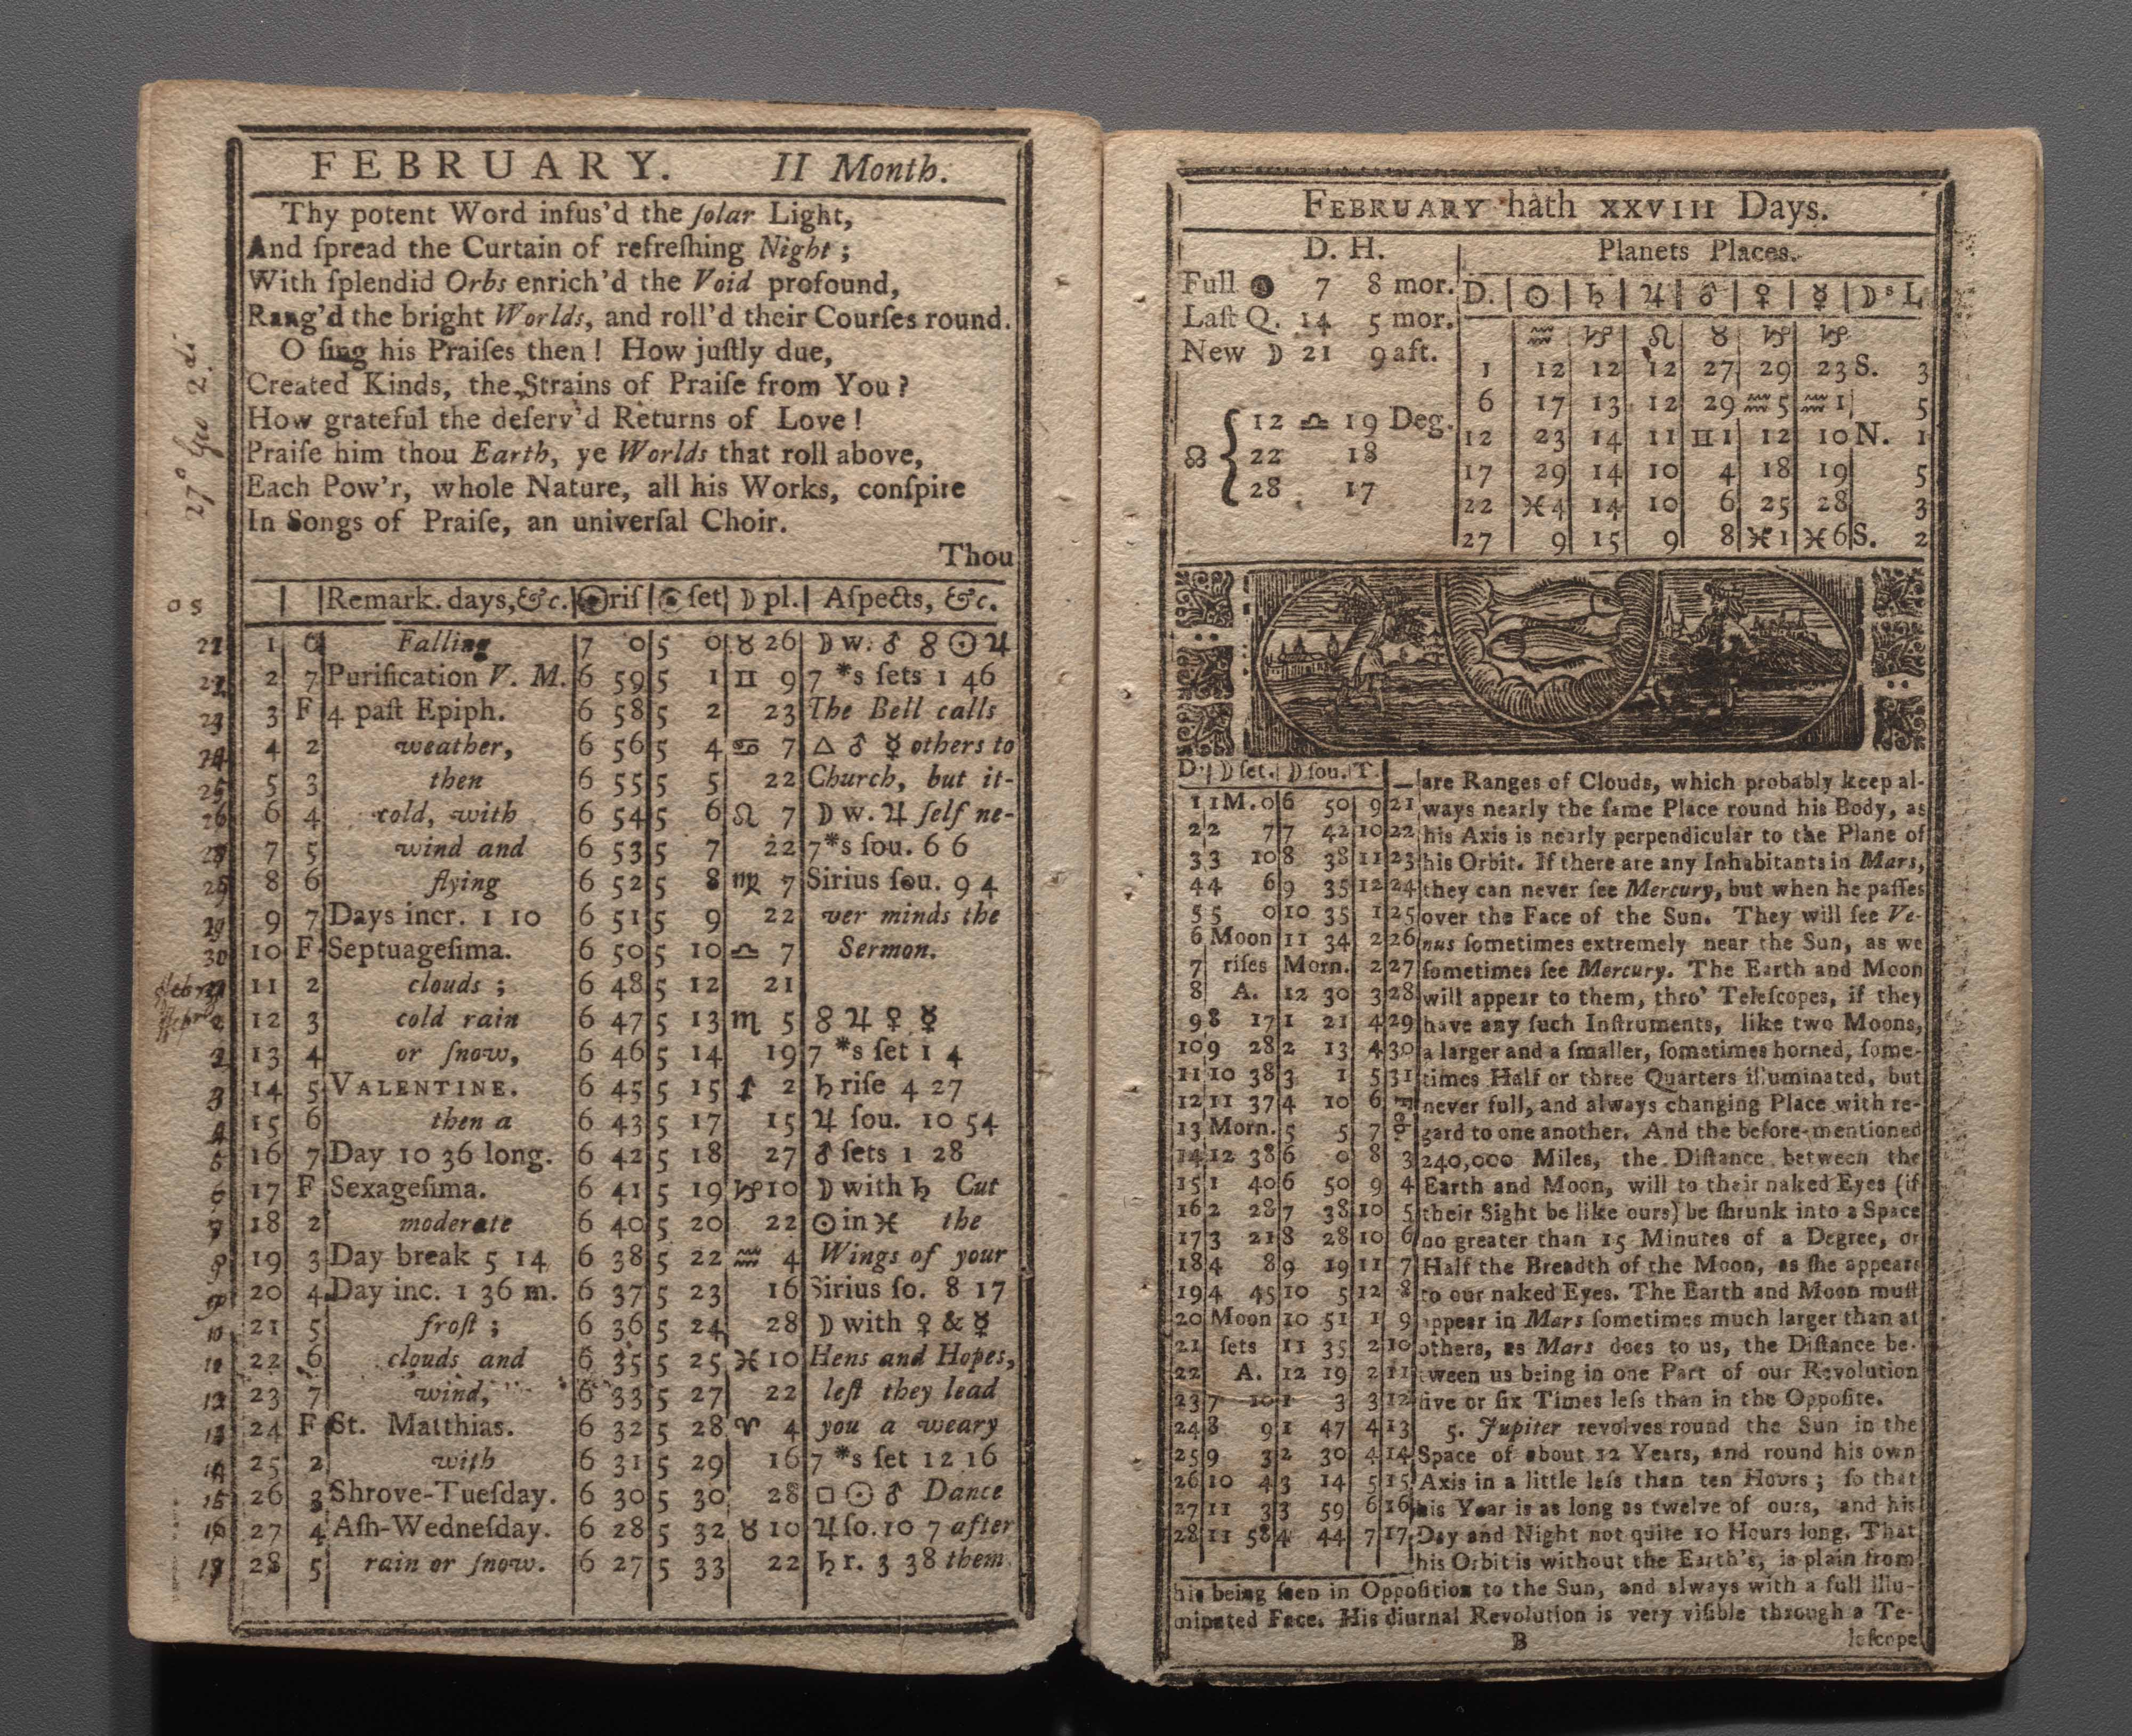 FEBRUARY. II Month.
Thy potent Word infus'd the ſolar Light,
And ſpread the Curtain of refreſhing Night ;
With ſplendid Orbs enrich'd the Void profound,
Rang'd the bright Worlds, and roll'd their Courſes round.
O ſing his Praiſes then ! How juſtly due,
Created Kinds, the Strains of Praiſe from You ?
How grateful the deſerv'd Returns of Love !
Praiſe him thou Earth, ye Worlds that roll above,
Each Pow'r, whole Nature, all his Works, conſpire
In Songs of Praiſe, an univerſal Choir.
Thou
Remark. days, &c. ☉riſ ☉ ſet ☽ pl. Aſpects, &c.
1 Falling 7 0 5 0 ♉ 26 ☽ w. ♂ ☍ ☉ ♃
2 7 Purification V. M. 6 59 5 1 ♊ 9 7 *s ſets 1 46
3 F 4 paſt Epiph. 6 58 5 2 23 The Bell calls
4 2 weather, 6 56 5 4 ♋ 7 △ ♂ ☿ others to
5 3 then 6 55 5 5 22 Church, but it-
6 4 cold, with 6 54 5 6 ♌ 7 ☽ w. ♃ ſelf ne-
7 5 wind and 6 53 5 7 22 7 *s ſou. 6 6
8 6 flying 6 52 5 8 ♍ 7 Sirius ſou. 9 4
9 7 Days incr. 1 10 6 51 5 9 22 ver minds the
10 F Septuageſima. 6 50 5 10 ♎ 7 Sermon.
11 2 clouds ; 6 48 5 12 21
12 3 cold rain 6 47 5 13 ♏ 5 ☍ ♃ ♀ ☿
13 4 or ſnow, 6 46 5 14 19 7 *s ſet 1 4
14 5 VALENTINE. 6 45 5 15 ♐ 2 ♄ riſe 4 27
15 6 then a 6 43 5 17 15 ♃ ſou. 10 54
16 7 Day 10 36 long. 6 42 5 18 27 ♂ ſets 1 28
17 F Sexageſima. 6 41 5 19 ♑ 10 ☽ with ♄ Cut
18 2 moderate 6 40 5 20 22 ☉ in ♓ the
19 3 Day break 5 14 6 38 5 22 ♒ 4 Wings of your
20 4 Day inc. 1 36 m. 6 37 5 23 16 Sirius ſo. 8 17
21 5 froſt ; 6 36 5 24 28 ☽ with ♀ & ☿
22 6 clouds and 6 35 5 25 ♓ 10 Hens and Hopes,
23 7 wind, 6 33 5 27 22 leſt they lead
24 F St. Matthias. 6 32 5 28 ♈ 4 you a weary
25 2 with 6 31 5 29 16 7 *s ſet 12 16
26 3 Shrove-Tueſday. 6 30 5 30 28 □ ☉ ♂ Dance
27 4 Aſh-Wedneſday. 6 28 5 32 ♉ 10 ♃ ſo. 10 7 after
28 5 rain or ſnow. 6 27 5 33 22 ♄ r. 3 38 them
FEBRUARY hath XXVIII Days.
D. H.
Full ● 7 8 mor.
Laſt Q. 14 5 mor.
New ☽ 21 9 aft.
☊ { 12 ♎ 19 Deg.
22 18
28 17
Planets Places.
D. ☉ ♄ ♃ ♂ ♀ ☿ ☽s L
♒ ♑ ♌ ♉ ♑ ♑
1 12 12 12 27 29 23 S. 3
6 17 13 12 29 ♒ 5 ♒ 1 5
12 23 14 11 ♊ 1 12 10 N. 1
17 29 14 10 4 18 19 5
22 ♓ 4 14 10 6 25 28 3
27 9 15 9 8 ♓ 1 ♓ 6 S. 2
D. ☽ ſet. ☽ ſou. T.
1 1M. 0 6 50 9 21
2 2 7 7 42 10 22
3 3 10 8 38 11 23
4 4 6 9 35 12 24
5 5 0 10 35 1 25
6 Moon 11 34 2 26
7 riſes Morn. 2 27
8 A. 12 30 3 28
9 8 17 1 21 4 29
10 9 28 2 13 4 30
11 10 38 3 1 5 31
12 11 37 4 10 6
13 Morn. 5 5 7
14 12 38 6 0 8 3
15 1 40 6 50 9 4
16 2 28 7 38 10 5
17 3 21 8 28 10 6
18 4 8 9 19 11 7
19 4 45 10 5 12 8
20 Moon 10 51 1 9
21 ſets 11 35 2 10
22 A. 12 19 2 11
23 7 10 1 3 3 12
24 8 9 1 47 4 13
25 9 3 2 30 4 14
26 10 4 3 14 5 15
27 11 3 3 59 6 16
28 11 58 4 44 7 17
are Ranges of Clouds, which probably keep al-
ways nearly the ſame Place round his Body, as
his Axis is nearly perpendicular to the Plane of
his Orbit. If there are any Inhabitants in Mars,
they can never ſee Mercury, but when he paſſes
over the Face of the Sun. They will ſee Ve-
nus ſometimes extremely near the Sun, as we
ſometimes ſee Mercury. The Earth and Moon
will appear to them, thro' Teleſcopes, if they
have any ſuch Inſtruments, like two Moons,
a larger and a ſmaller, ſometimes horned, ſome-
times Half or three Quarters illuminated, but
never full, and always changing Place with re-
gard to one another. And the before-mentioned
240,000 Miles, the Diſtance between the
Earth and Moon, will to their naked Eyes (if
their Sight be like ours) be ſhrunk into a Space
no greater than 15 Minutes of a Degree, or
Half the Breadth of the Moon, as ſhe appears
to our naked Eyes. The Earth and Moon muſt
appear in Mars ſometimes much larger than at
others, as Mars does to us, the Diſtance be-
tween us being in one Part of our Revolution
five or ſix Times leſs than in the Oppoſite.
5. Jupiter revolves round the Sun in the
Space of about 12 Years, and round his own
Axis in a little leſs than ten Hours ; ſo that
his Year is as long as twelve of ours, and his
Day and Night not quite 10 Hours long. That
his Orbit is without the Earth's, is plain from
his being ſeen in Oppoſition to the Sun, and always with a full illu-
minated Face. His diurnal Revolution is very viſible through a Te-
B leſcope